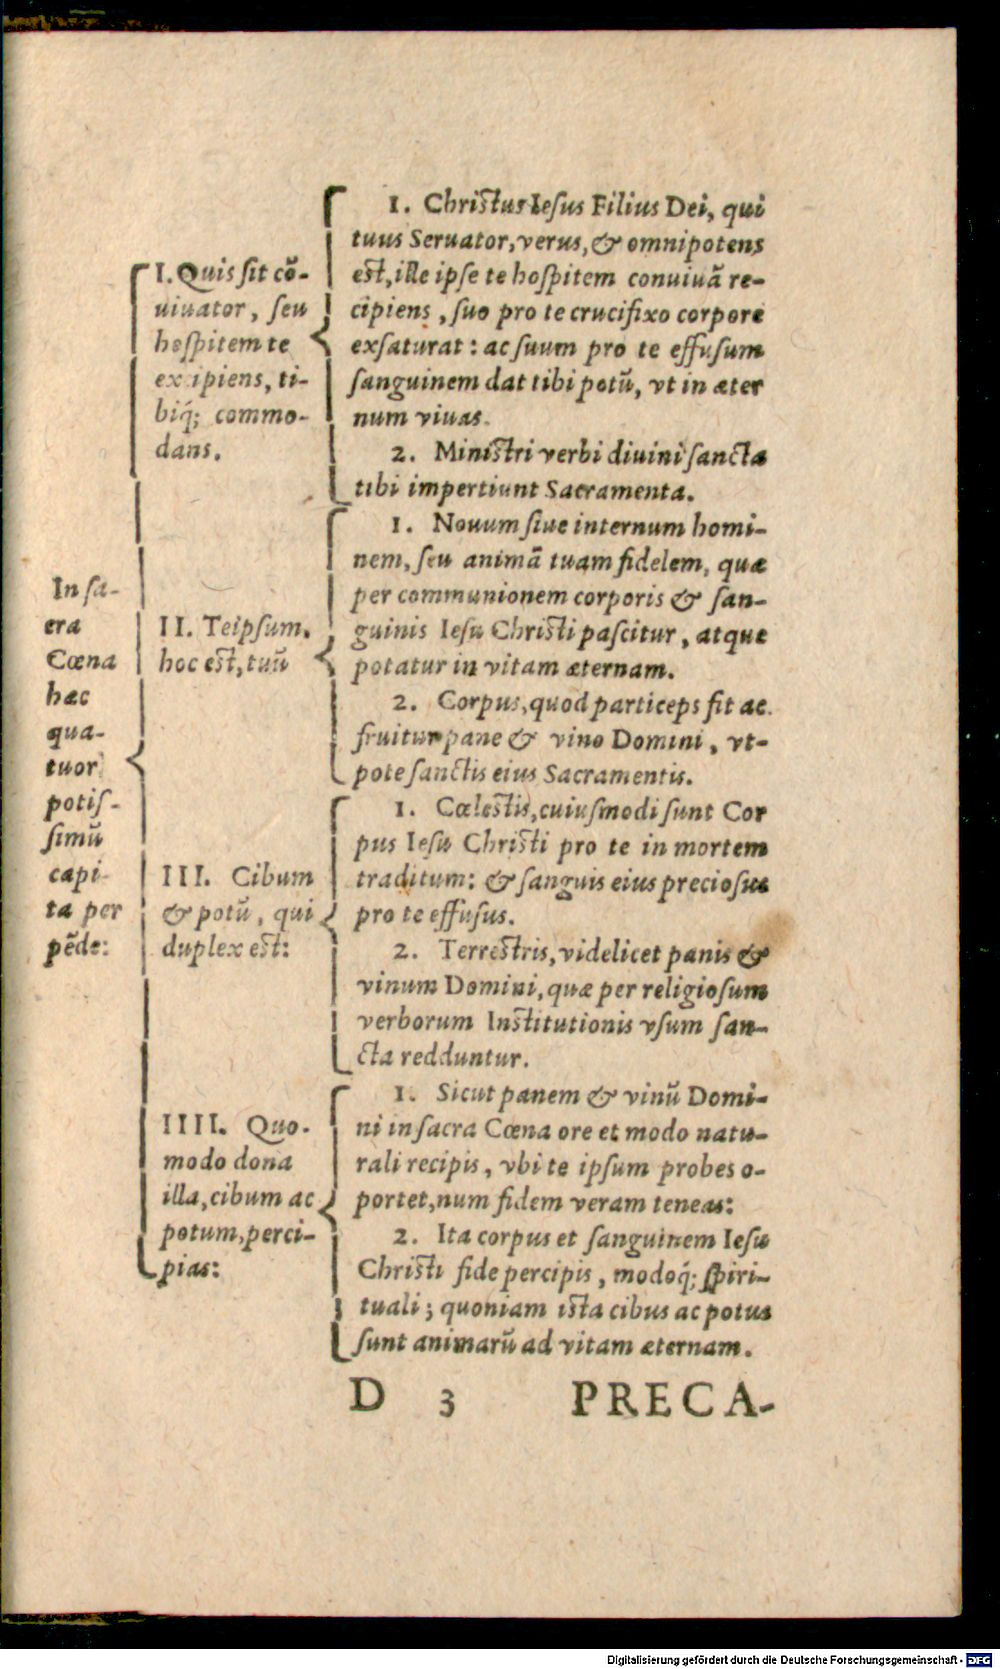 In sa-
cra
Cœna
hæc
qua-
tuor
potiſ-
ſimũ
capi-
ta per
pẽde:
I. Quis ſit cõ-
uiuator, ſeu
hoſpitem te
excipiens, ti-
biq́; commo-
dans.
1. Chriſtus Ieſus Filius Dei, qui
tuus Seruator, verus, & omnipotens
eſt, ille ipſe te hoſpitem conuiuã re-
cipiens, ſuo pro te crucifixo corpore
exſaturat: ac ſuum pro te effuſum
ſanguinem dat tibi potũ, vt in æter
num viuas.
2. Miniſtri verbi diuini ſancta
tibi impertiunt Sacramenta.
II. Teipſum.
hoc eſt, tuũ
1. Nouum ſiue internum homi-
nem, ſeu animã tuam fidelem, quæ
per communionem corporis & ſan-
guinis Ieſu Chriſti paſcitur, atque
potatur in vitam æternam.
2. Corpus, quod particeps fit ac
fruitur pane & vino Domini, vt-
pote ſanctis eius Sacramentis.
III. Cibum
& potũ, qui
duplex eſt:
1. Cœleſtis, cuiuſmodi ſunt Cor
pus Ieſu Chriſti pro te in mortem
traditum: & ſanguis eius precioſus
pro te effuſus.
2. Terreſtris, videlicet panis &
vinum Domini, quæ per religioſum
verborum Inſtitutionis vſum ſan-
cta redduntur.
IIII. Quo-
modo dona
illa, cibum ac
potum, perci-
pias:
1. Sicut panem & vinũ Domi-
ni in ſacra Cœna ore et modo natu-
rali recipis, vbi te ipſum probes o-
portet, num fidem veram teneas:
2. Ita corpus et ſanguinem Ieſu
Chriſti fide percipis, modoq́; ſpiri-
tuali; quoniam iſta cibus ac potus
ſunt animarũ ad vitam æternam.
D 3 PRECA-
Digitalisierung gefördert durch die Deutsche Forschungsgemeinschaft - DFG